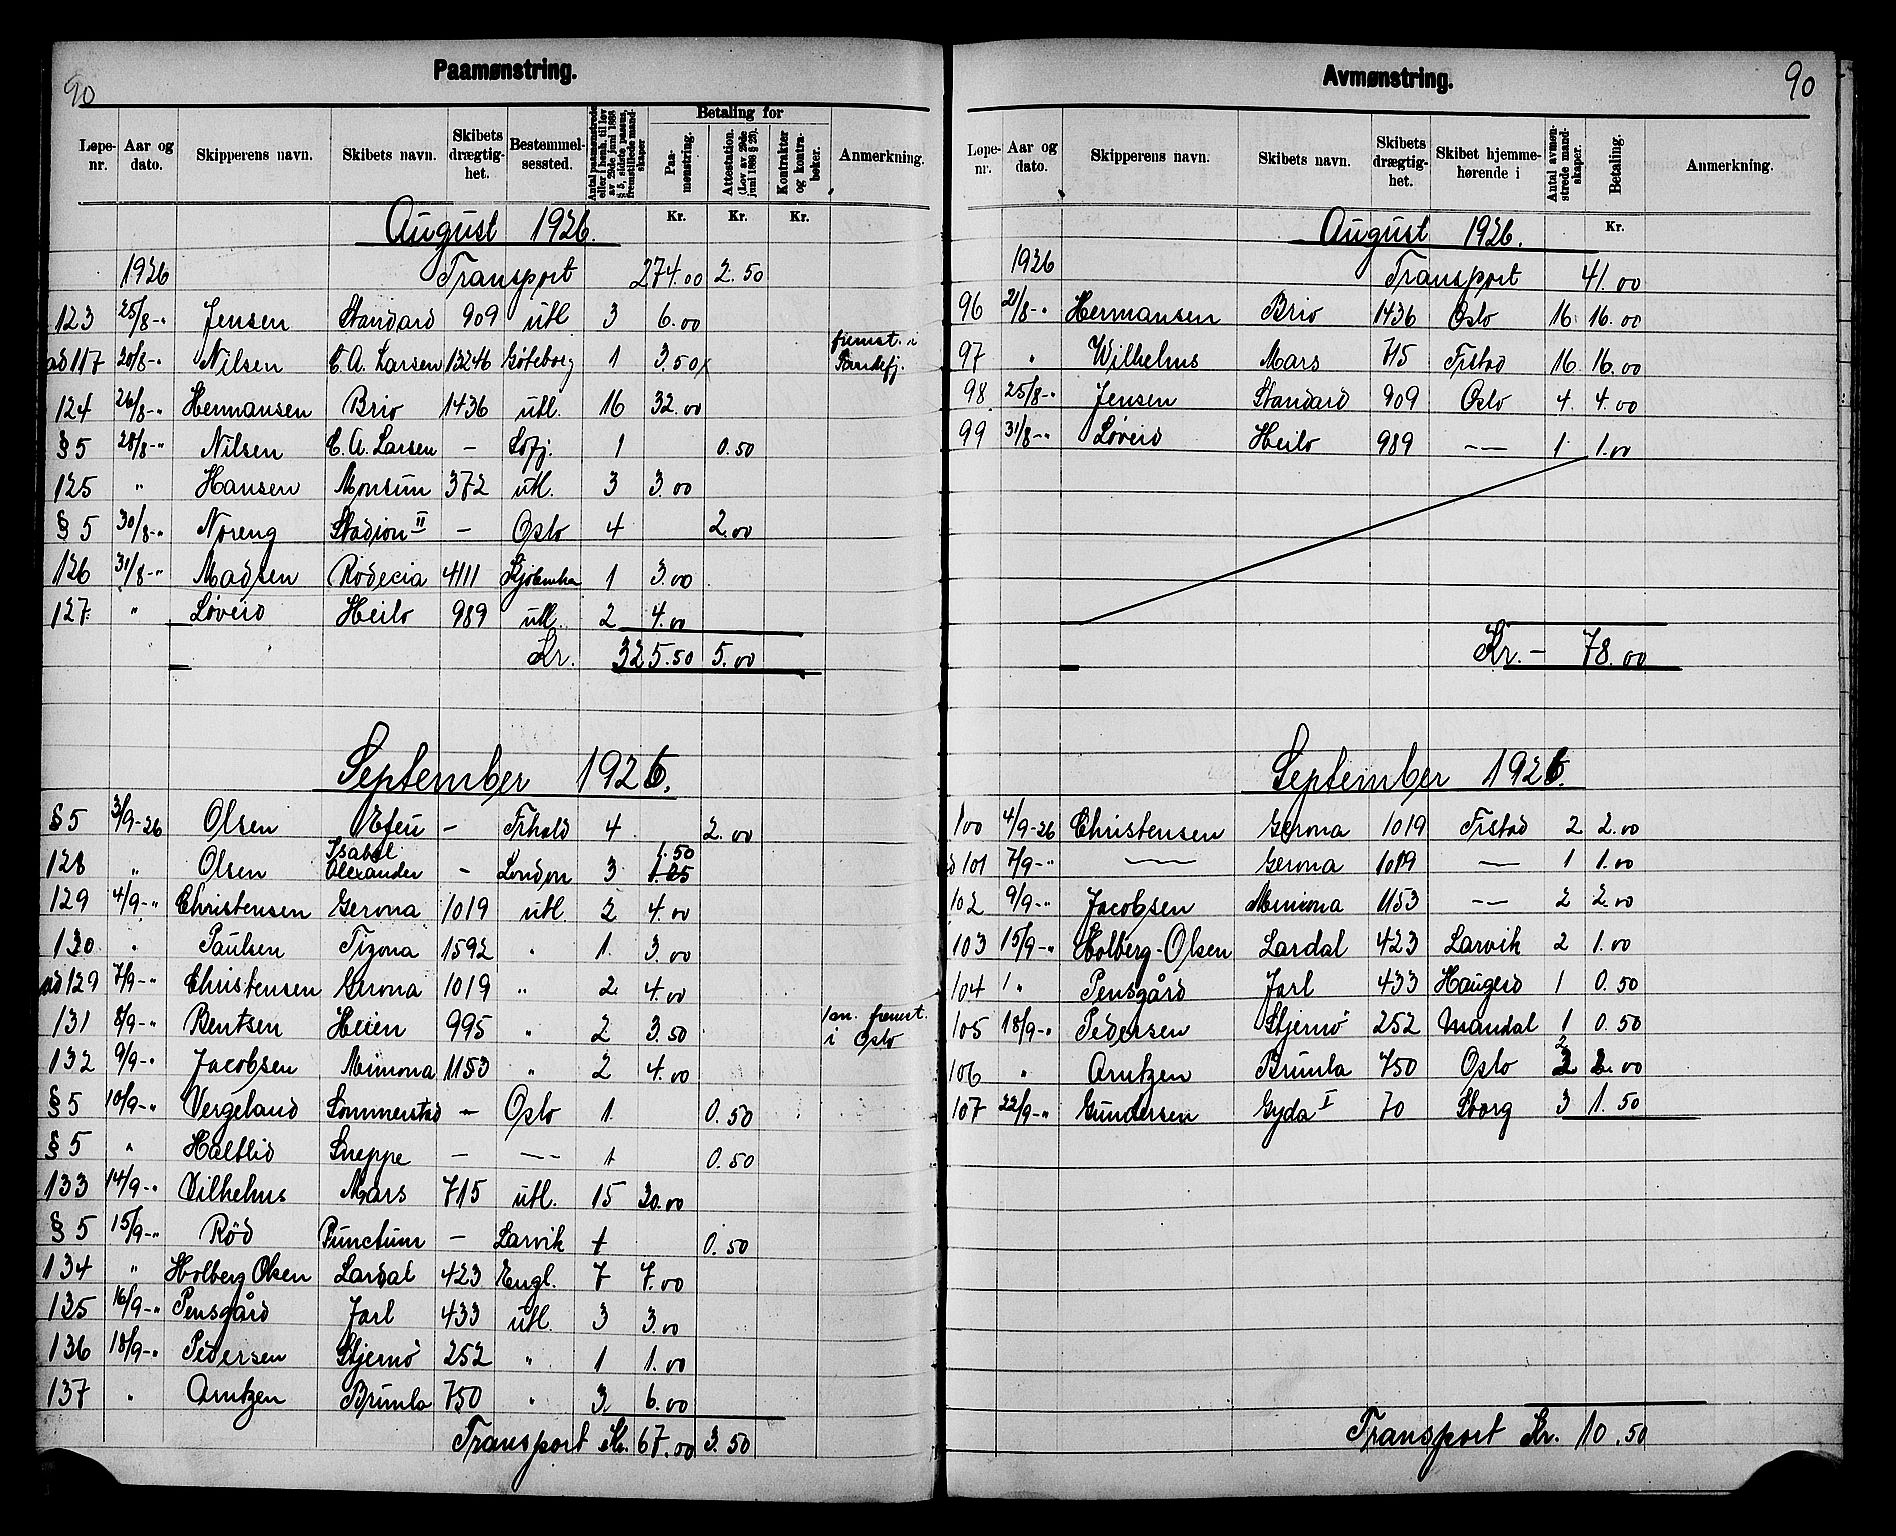 90
Paamønstring.
Løpe-nr. Aar og dato. Skipperens navn. Skibets navn. Skibets drægtighet. Bestemmelsessted. Antal paamønstrede eller i henh. til lov av 29de juni 1888 § 5, sidste passus, fremstillede mandskaper Betaling for Paamønstring. Attestation. (Lov av 29de juni 1888 § 25). Kontrakter og kontrabøker. Anmerkning.
August 1926. Kr. Kr. Kr.
1926 Transport 274.00 2.50
123 25/8-" Jensen Standard 909 utl 3 6.00
ad 117 20/8-" Nilsen C. A. Larsen 13246 Göteborg 1 3.50 fremst. i Sandefj.
124 26/8-" Hermansen Brio 1436 utl. 16 32.00
§ 5 28/8-" Nilsen C. A. Larsen - Sdfj. 1 0.50
125 " Hansen Monsun 372 utl. 3 3.00
§ 5 30/8-" Noreng Stadion II - Oslo 4 2.00
126 31/8-" Madsen Rodecia 4111 Kjøbenha 1 3.00
127. " Løveid Heilo 989 utl. 2 4.00
Kr. 325.50 5.00
September 1926.
§ 5 3/9-26 Olsen - Frhald 4 2.00
128 " Olsen Isabel Alexander - London 3 1.50 1.25
129 4/9-" Christensen Gerona 1019 utl 2 4.00
130 " Paulsen Tizona 1592 " 1. 3.00
ad 129 7/9-" Christensen Gerona 1019 " 2 4.00
131 8/9-" Bentsen Heien 995 " 2 3.50 1an. fremst. i Oslo
132 9/9-" Jacobsen Mimona 1153 " 2 4.00
§ 5 10/9-" Vergeland Sommerstad - Oslo 1 0.50
§ 5 " Haltlid Sneppe - -"- 1 0.50
133 14/9-" Vilhelms Mars 715 utl. 15 30.00
§ 5 15/9-" Rød Punctum - Larvik 1 0.50
134 " Holberg Olsen Lardal 423 Engl. 7 7.00
135 16/9-" Pensgård Jarl 433 utl. 3 3.00
136 18/9-" Pedersen Stjernö 252 " 1 1.00
137 " Arntzen Brumla 750 " 3 6.00
Transport Kr. 67.00 3.50
Avmønstring.
90
Løpe-nr. Aar og dato. Skipperens navn. Skibets navn. Skibets drægtighet. Skibet hjemmehørende i Antal avmønstrede mandskaper. Betaling. Anmerkning.
August 1926. Kr.
1926 Transport 41.00
96 21/8-" Hermansen Brio 1436 Oslo 16 16.00
97 " Wilhelms Mars 715 Frstad 16 16.00
98 25/8-" Jensen Standard 909 Oslo 4. 4.00
99 31/8-" Løveid Heilo 989 -"- 1 1.00
Kr. - 78.00
September 1926.
100 4/9-26 Christensen Gerona 1019 Frstad 2 2.00
101 7/9-" -"- Gerona 1019 -"- 1 1.00
102 9/9-" Jacobsen Mimona 1153 -"- 2 2.00
103 15/9-" Holberg-Olsen Lardal 423 Larvik 2 1.00
104 " Pensgård Jarl 433 Haugesd 1 0.50
105 18/9-" Pedersen Stjernö 252 Mandal 1 0.50
106 " Arntzen Brumla 750 Oslo 2 2.00
107 22/9-" Gundersen Gyda I 70 Sborg 3 1.50
Transport Kr. 10.50